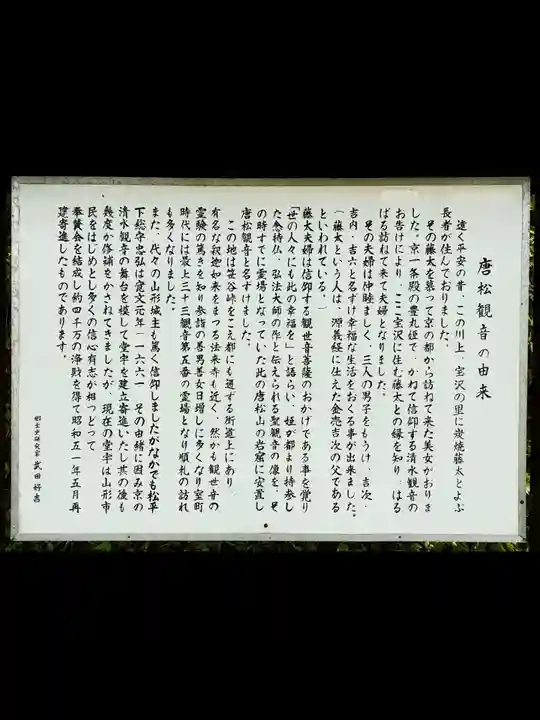 唐松観音の由来
遠く平安の昔、この川上、宝沢の里に炭焼藤太とよぶ
長者が住んでおりました。
その藤太を慕って京の都から訪ねて来た美女がおりま
した。京一条殿の豊丸姫で、かねて信仰する清水観音の
お告げにより、ここ宝沢に住む藤太との縁を知り、はる
ばる訪ねて来て夫婦となりました。
その夫婦は仲睦ましく、三人の男子をもうけ、吉次・
吉内・吉六と名ずけ幸福な生活をおくる事が出来ました。
（藤太という人は、源義経に仕えた金売吉次の父である
といわれている。）
藤太夫婦は信仰する観世音菩薩のおかげである事を覚り
「世の人々にも此の幸福を」と語らい、姫が都より持参し
た念持仏、弘法大師の作と伝えられる聖観音の像を、そ
の時すでに霊場となっていた此の唐松山の岩窟に安置し
唐松観音と名ずけました。
この地は笹谷峠をこえ都にも通ずる街道上にあり、
有名な釈迦如来をまつる法来寺も近く、然かも観世音の
霊験の篤きを知り参詣の善男善女日増しに多くなり室町
時代には最上三十三観音第五番の霊場となり順礼の訪れ
も多くなりました。
また、代々の山形城主も篤く信仰しましたがなかでも松平
下総守忠弘は寛文元年―一六六一　その由緒に因み京の
清水観音の舞台を模して堂宇を建立寄進いたし其の後も
幾度か修補をかさねてきましたが、現在の堂宇は山形市
民をはじめとし多くの信心有志が相つどって
奉賛会を結成し約四千万の浄財を得て昭和五一年五月再
建寄進したものであります。
郷土史研究家 武田好吉